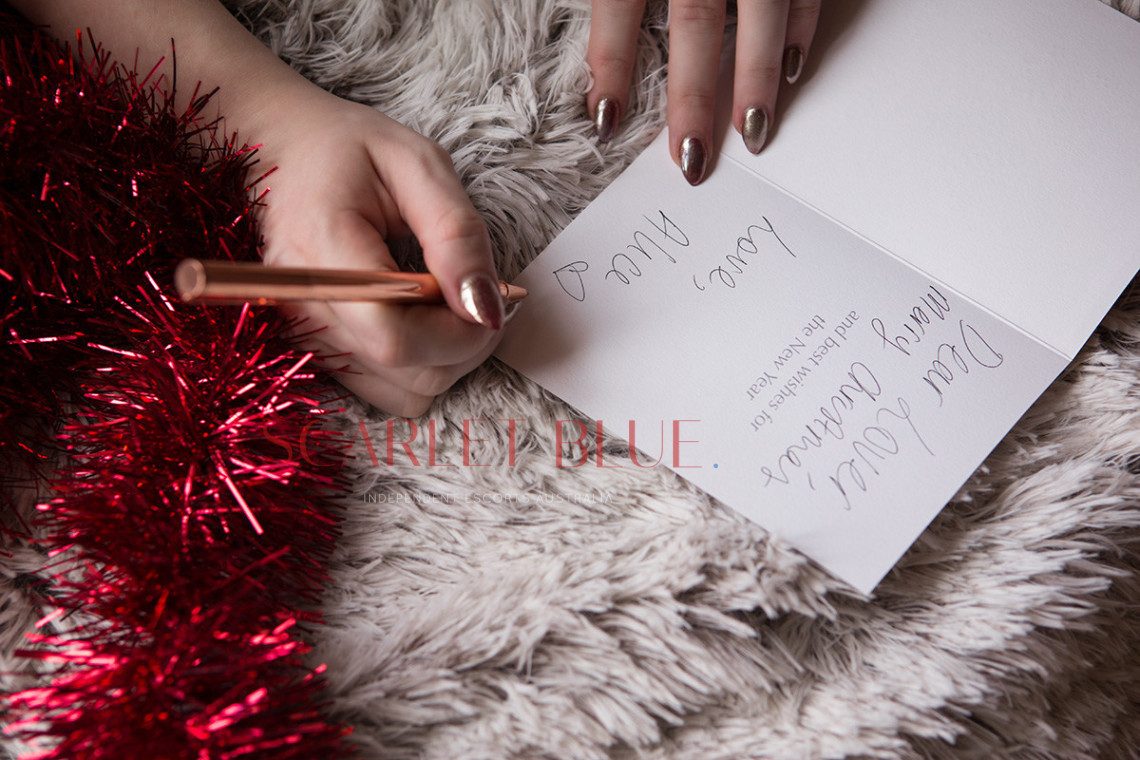 Dear Lover
Merry Christmas
and best wishes for
the New Year
Love,
Alice
SCARLET BLUE.
INDEPENDENT ESCORTS AUSTRALIA